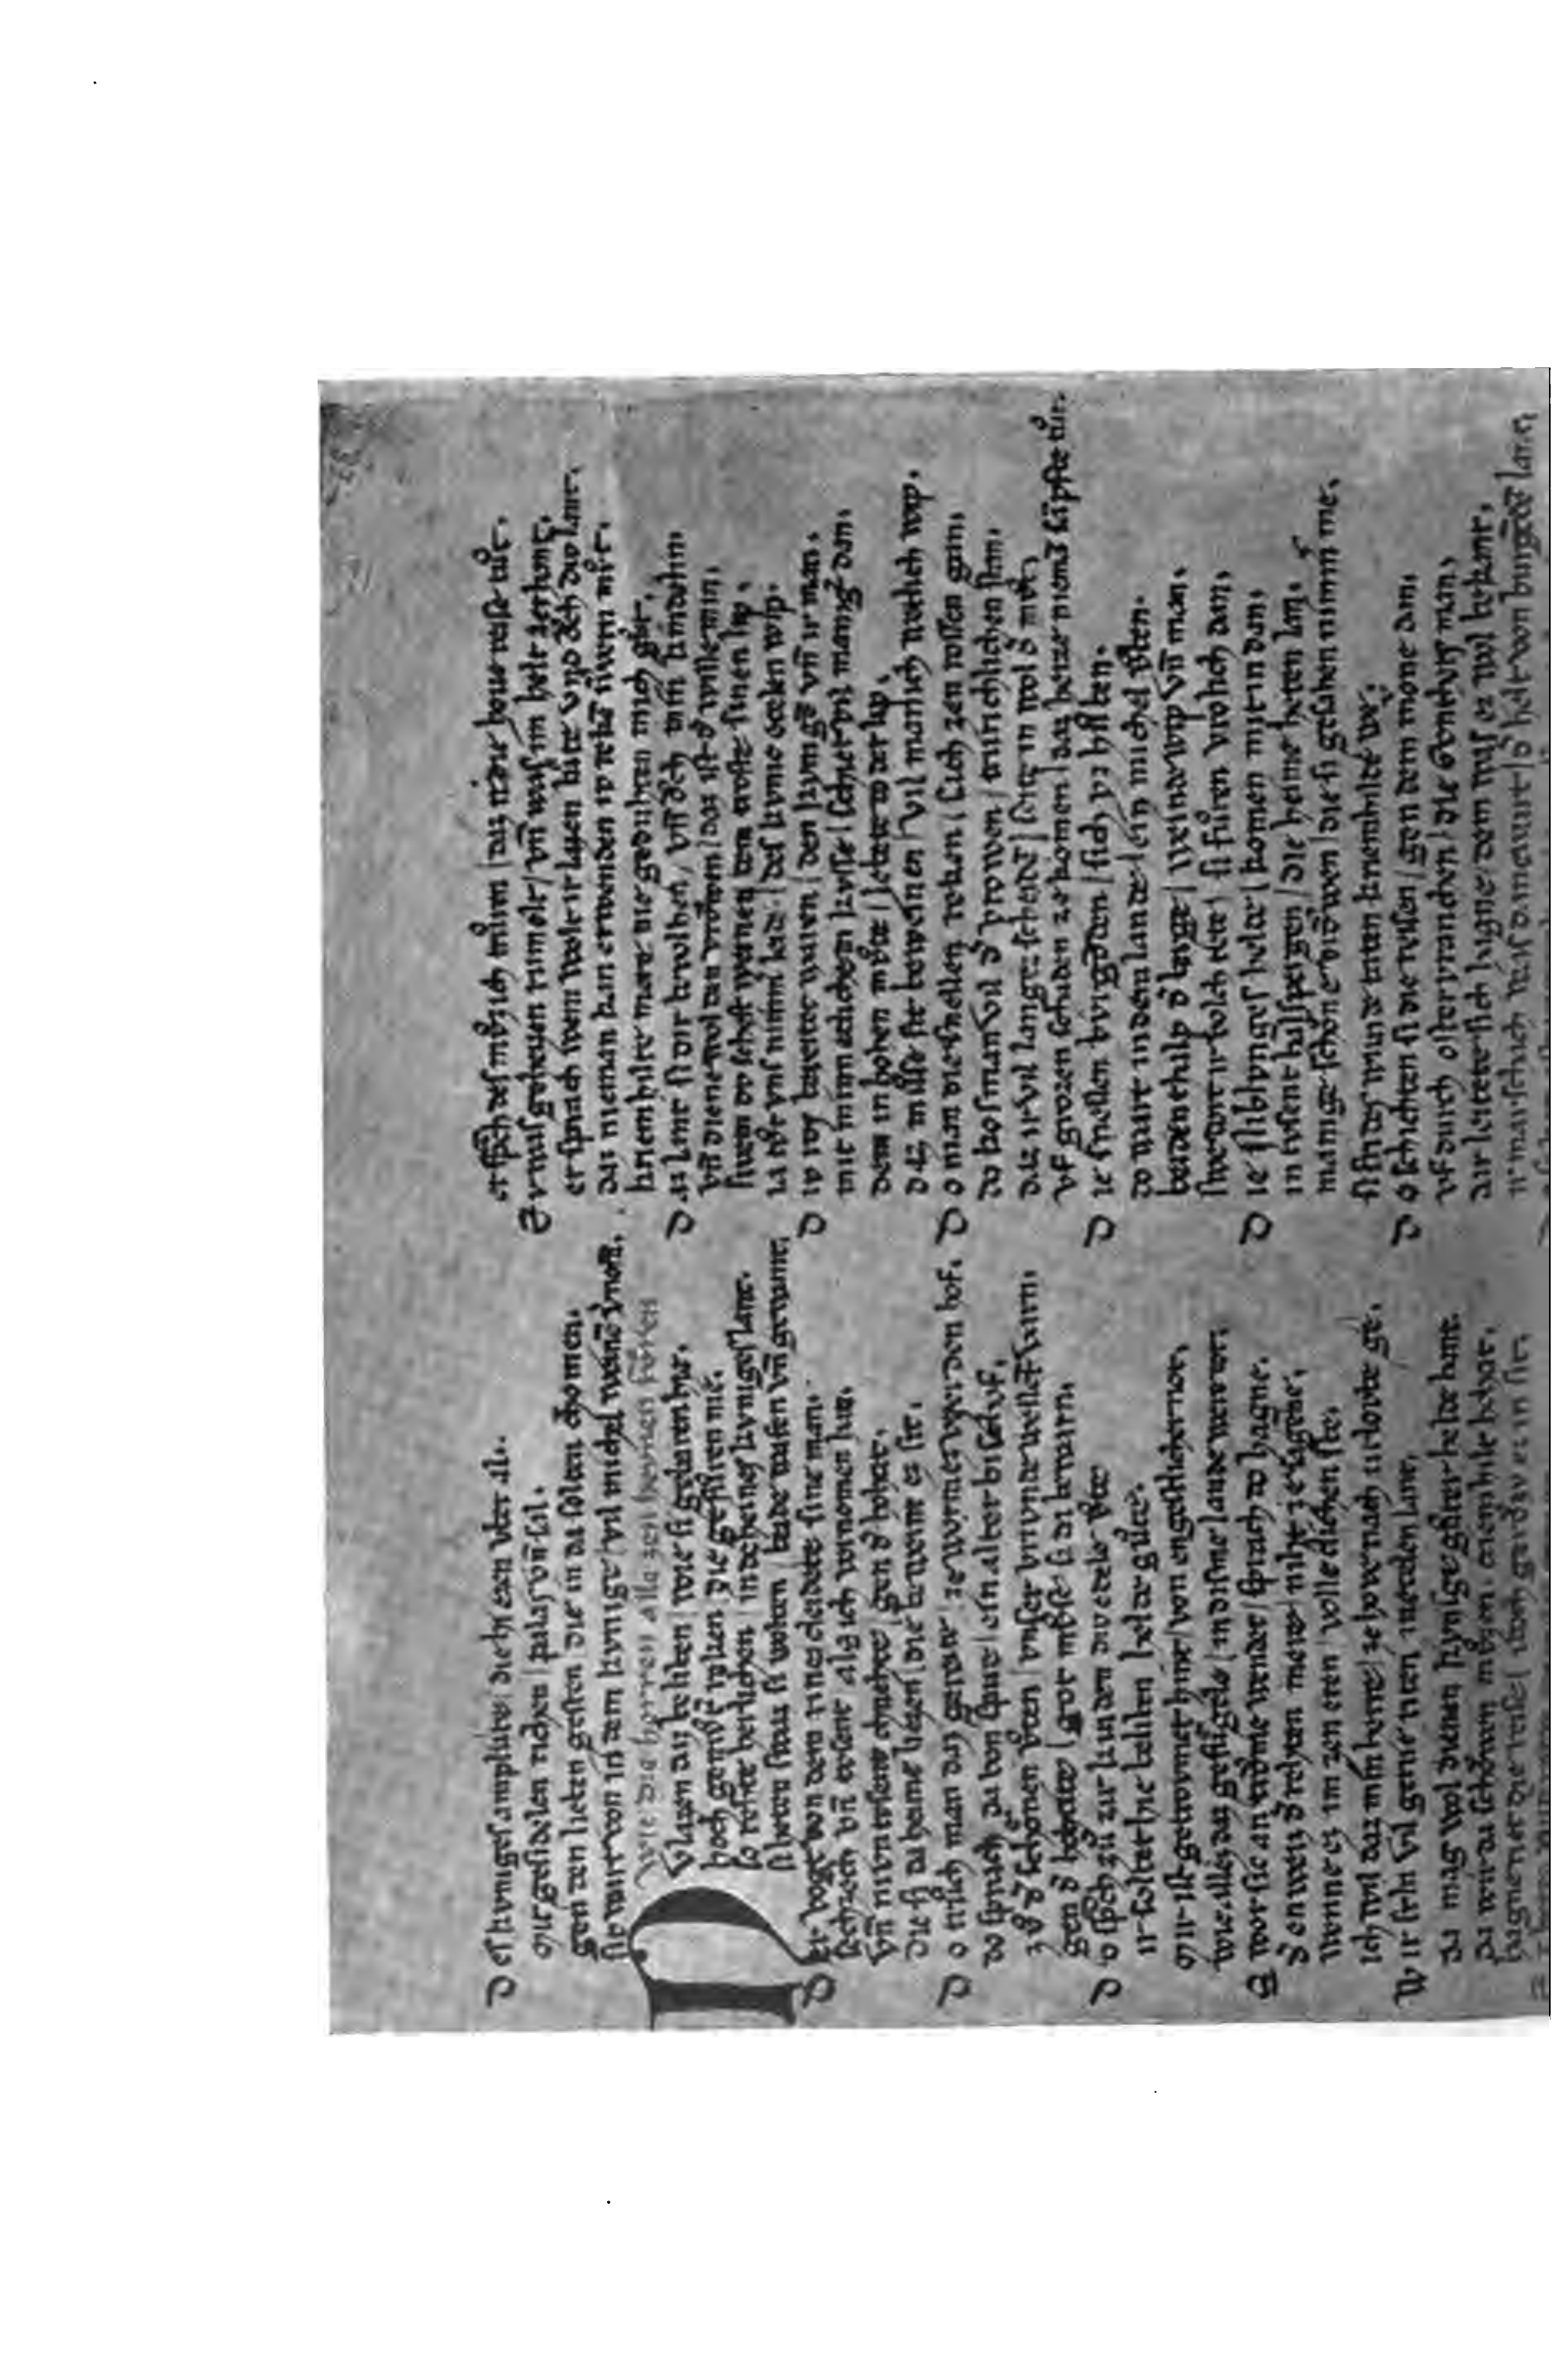 D es kuniges amptlute die hiezzen uber al.
mit gesidelen richen palas vn sal.
gen den lieben gesten die in da solten chomen.
sit wart von in dem kunige vil michel weinen vnom.
Wie die herren alle zen heunen fůren
Nv lazen daz beliben wie si gebaren hie.
hoch gemůter rechen die gefůren nie.
so rehte herlichen in decheines kuniges lant.
si heten swaz si wolten beide wafen vn gewant.
D er voget von dem rine cleidete sine man.
sehzech vn tusent als ich vernomen han.
vn nivn tusent chnehte gen der hohzit.
die si da heime liezen die beweinte ez sit.
D o trůch man daz gereite ze wormez vber den hof.
do sprach da von spire ein alter bischof.
zů der schonen vten vnser vrivnde wellent varn.
gen der hohzite got můze si da bewarn.
D o sprach zů zir kinden div edele vte
ir soltet hie beliben helde gůte.
mir ist getrovmet hint von engestlicher not.
wie allez daz gefugele in disme lande were tot.
S wer sich an trovme wendet sprach do hagne.
der enweiz der rehten mere niht ze sagene.
wenne ez im zen eren volledichen ste.
ich wil daz min herre ze hove nach urlobe ge.
W ir svln vil gerne riten in ezelen lant.
da mag wol dienen kunige gůter helde hant.
da wir da schowen mvzen criemhilde hohzit.
hagne riet die reise idoch gerov ez in sit.
er sprach des můz ich můtem daz div hove reise tůt.
E r mvst geheuen rumolt vn mvs im hete erchunt.
er sprach wem wolt ir lazen lute vn och div lant.
daz nieman kan erwenden iv reken iwern můt.
kriemhilte mere nie gedvhten mich gůt.
D az lant si dir bevolhen vn och min kindelin
vn diene wol den vrowen daz ist der wille min.
swem dv sehest weinen dem troste sinen lip.
ia tůt vns nimmer leide des kunic ezelen wip.
D iv ros bereitet waren den kunigen vn ir man.
mit minneclichem kusse schiet vil maniger dan.
dem in hohen můte lebete do der lip.
daz můse sit beweinen vil manich wetlich wip.
D o man die snellen reken sach zen rossen gan.
do kos man vil der vrowen trurichlichen stan.
daz ir vil langez scheiden seite in wol der můt
vf grozen schaden ze komen daz herze niemen sanfte tůt.
D ie snellen bvrgonden sich vz hůben.
do wart in dem lande ein michel vben.
beidenthalp der berge weinde wip vn man.
swie dort ir folch tete si fůren vrolich dan.
D ie niblvnges helde komen mit in dan.
in tvsent halspergen die heime heten lan.
manige schone vrowen die si gesahen nimmer me.
sifrides wunden taten kriemhilte we.
D o schichten si die reise gen dem mone dan.
vf durch osterfranchen die Guntheres man.
dar leitete sich hagne dem was ez wol bekant.
ir marschach was danewart der helt von burgonden lant.